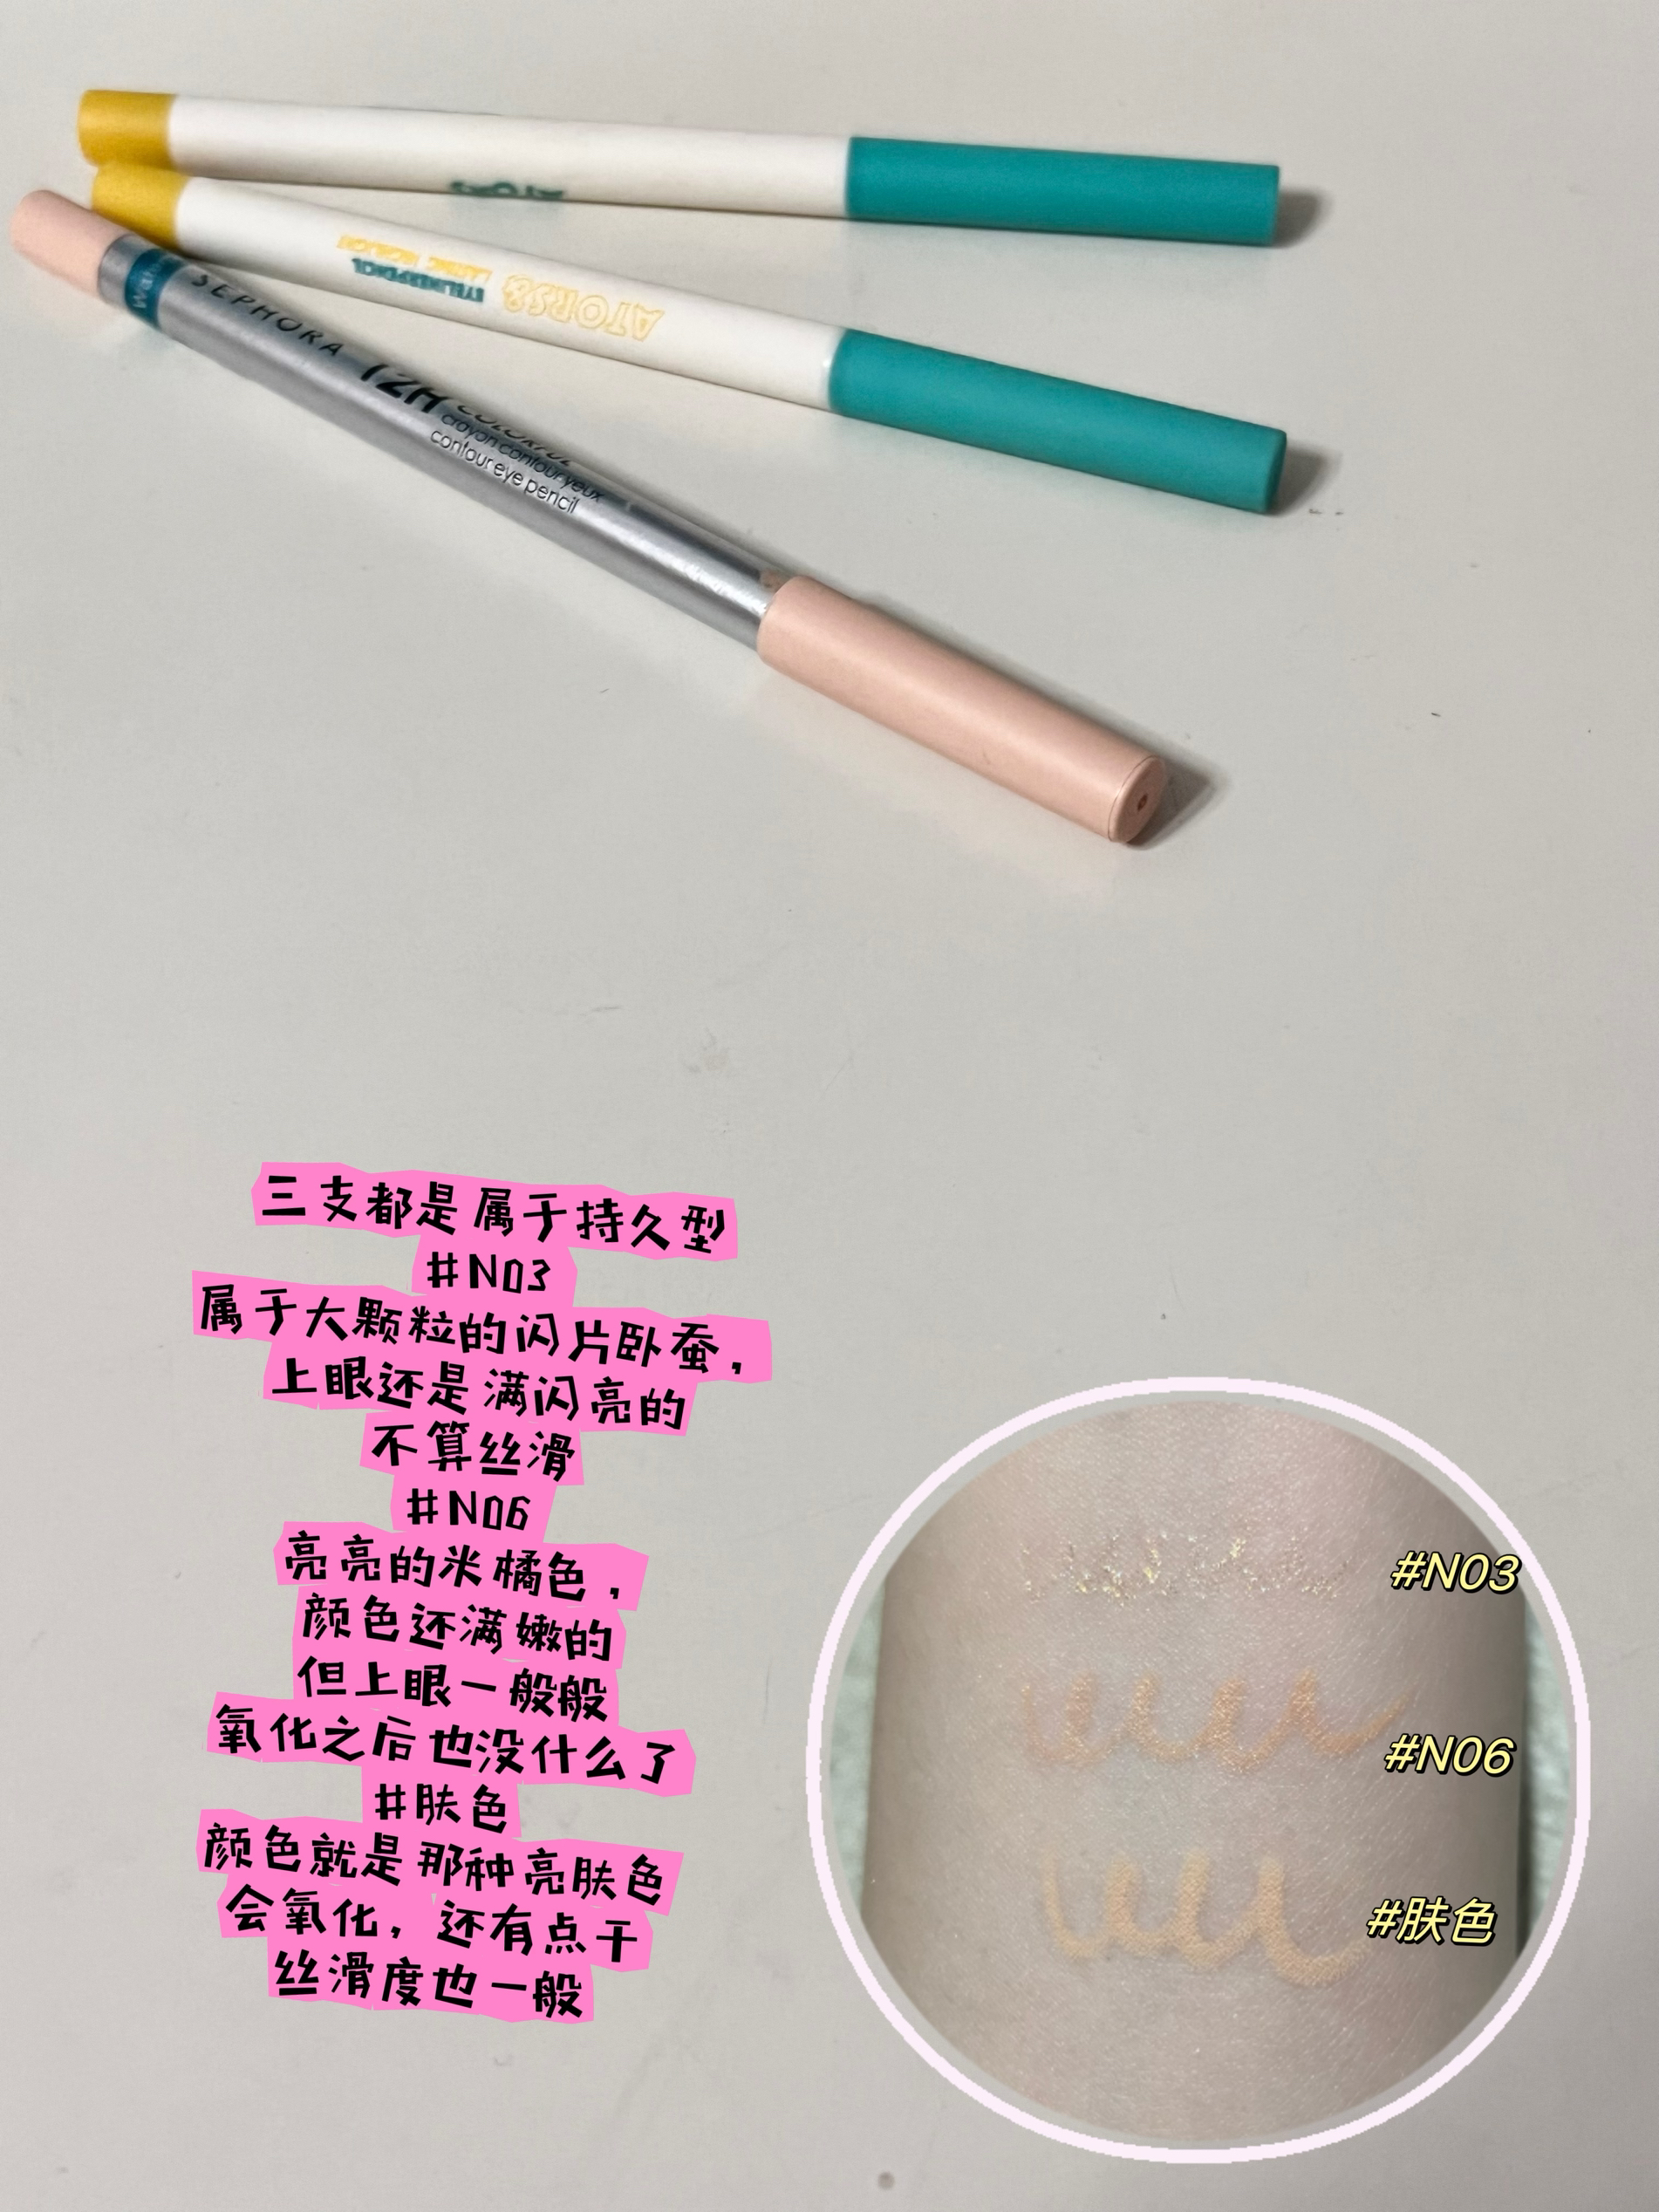 ATORS
ATORS8
EYELINERPENCIL
SEPHORA
12H COLORFUL
crayon contour yeux
contour eye pencil
三支都是属于持久型
#N03
属于大颗粒的闪片卧蚕，
上眼还是满闪亮的
不算丝滑
#N06
亮亮的米橘色，
颜色还满嫩的
但上眼一般般
氧化之后也没什么了
#肤色
颜色就是那种亮肤色
会氧化，还有点干
丝滑度也一般
#N03
#N06
#肤色